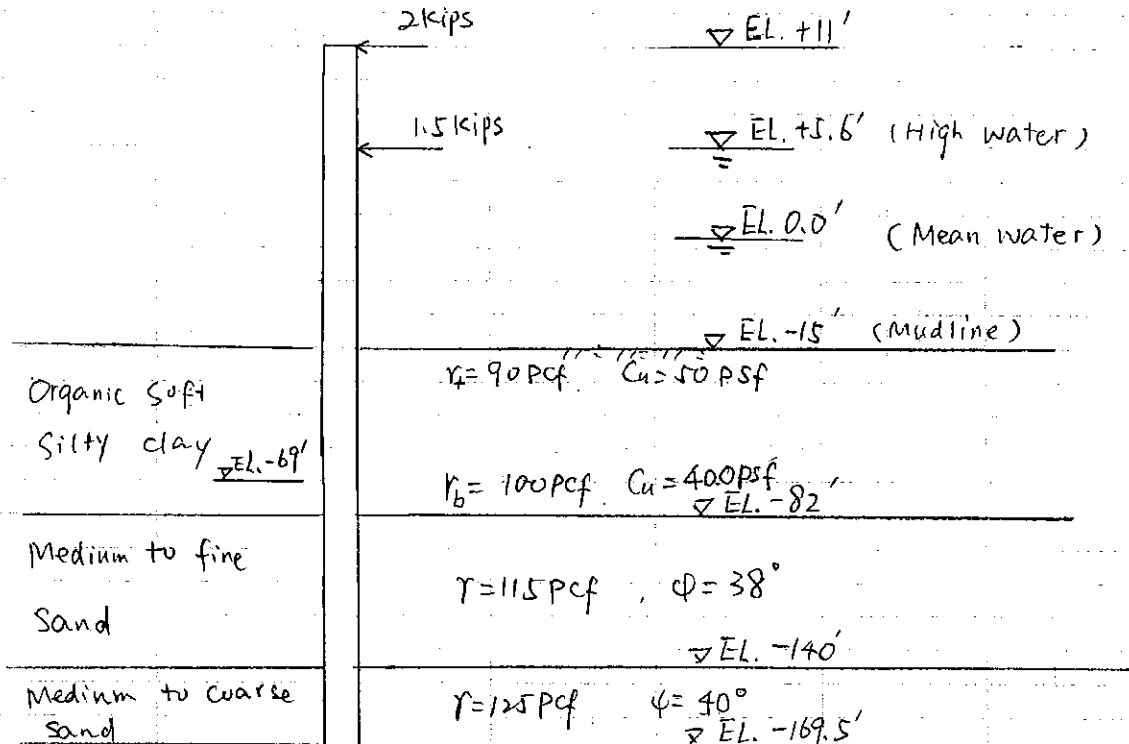 2kips
▽ EL. +11'
1.5kips
▽ EL. +5.6' (High water)
▽ EL. 0.0' (Mean water)
▽ EL. -15' (Mudline)
Organic Soft
Silty clay ▽ EL. -69'
γt = 90 pcf Cu = 50 psf
γb = 100 pcf Cu = 400 psf
▽ EL. -82'
Medium to fine
Sand
γ = 115 pcf , φ = 38°
▽ EL. -140'
Medium to coarse
sand
γ = 125 pcf φ = 40°
▽ EL. -169.5'